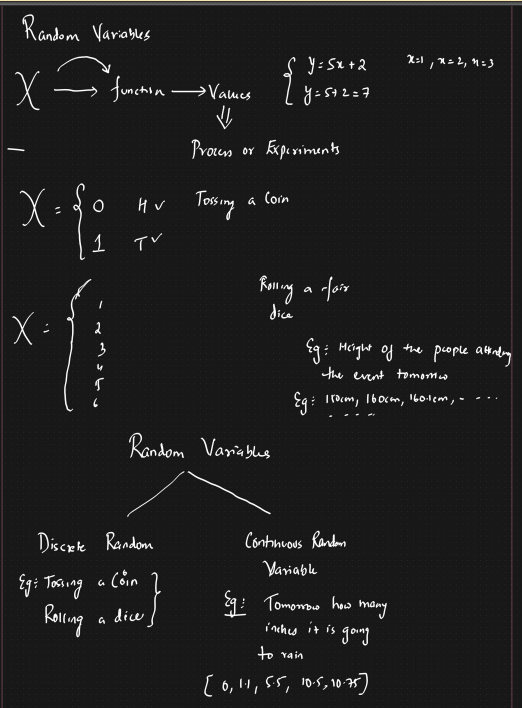 Random Variables
X → function → Values
y = 5x + 2
y = 5 + 2 = 7
x=1, x=2, x=3
Process or Experiments
X = { 0 H ✓
1 T ✓
Tossing a Coin
X = { 1
2
3
4
5
6
Rolling a fair
dice
Eg: Height of the people attending
the event tomorrow
Eg: 150cm, 160cm, 160.1cm, - - - -
- - - - -
Random Variables
Discrete Random
Eg: Tossing a Coin
Rolling a dice
Continuous Random
Variable
Eg: Tomorrow how many
inches it is going
to rain
[ 0, 1.1, 5.5, 10.5, 10.75 ]